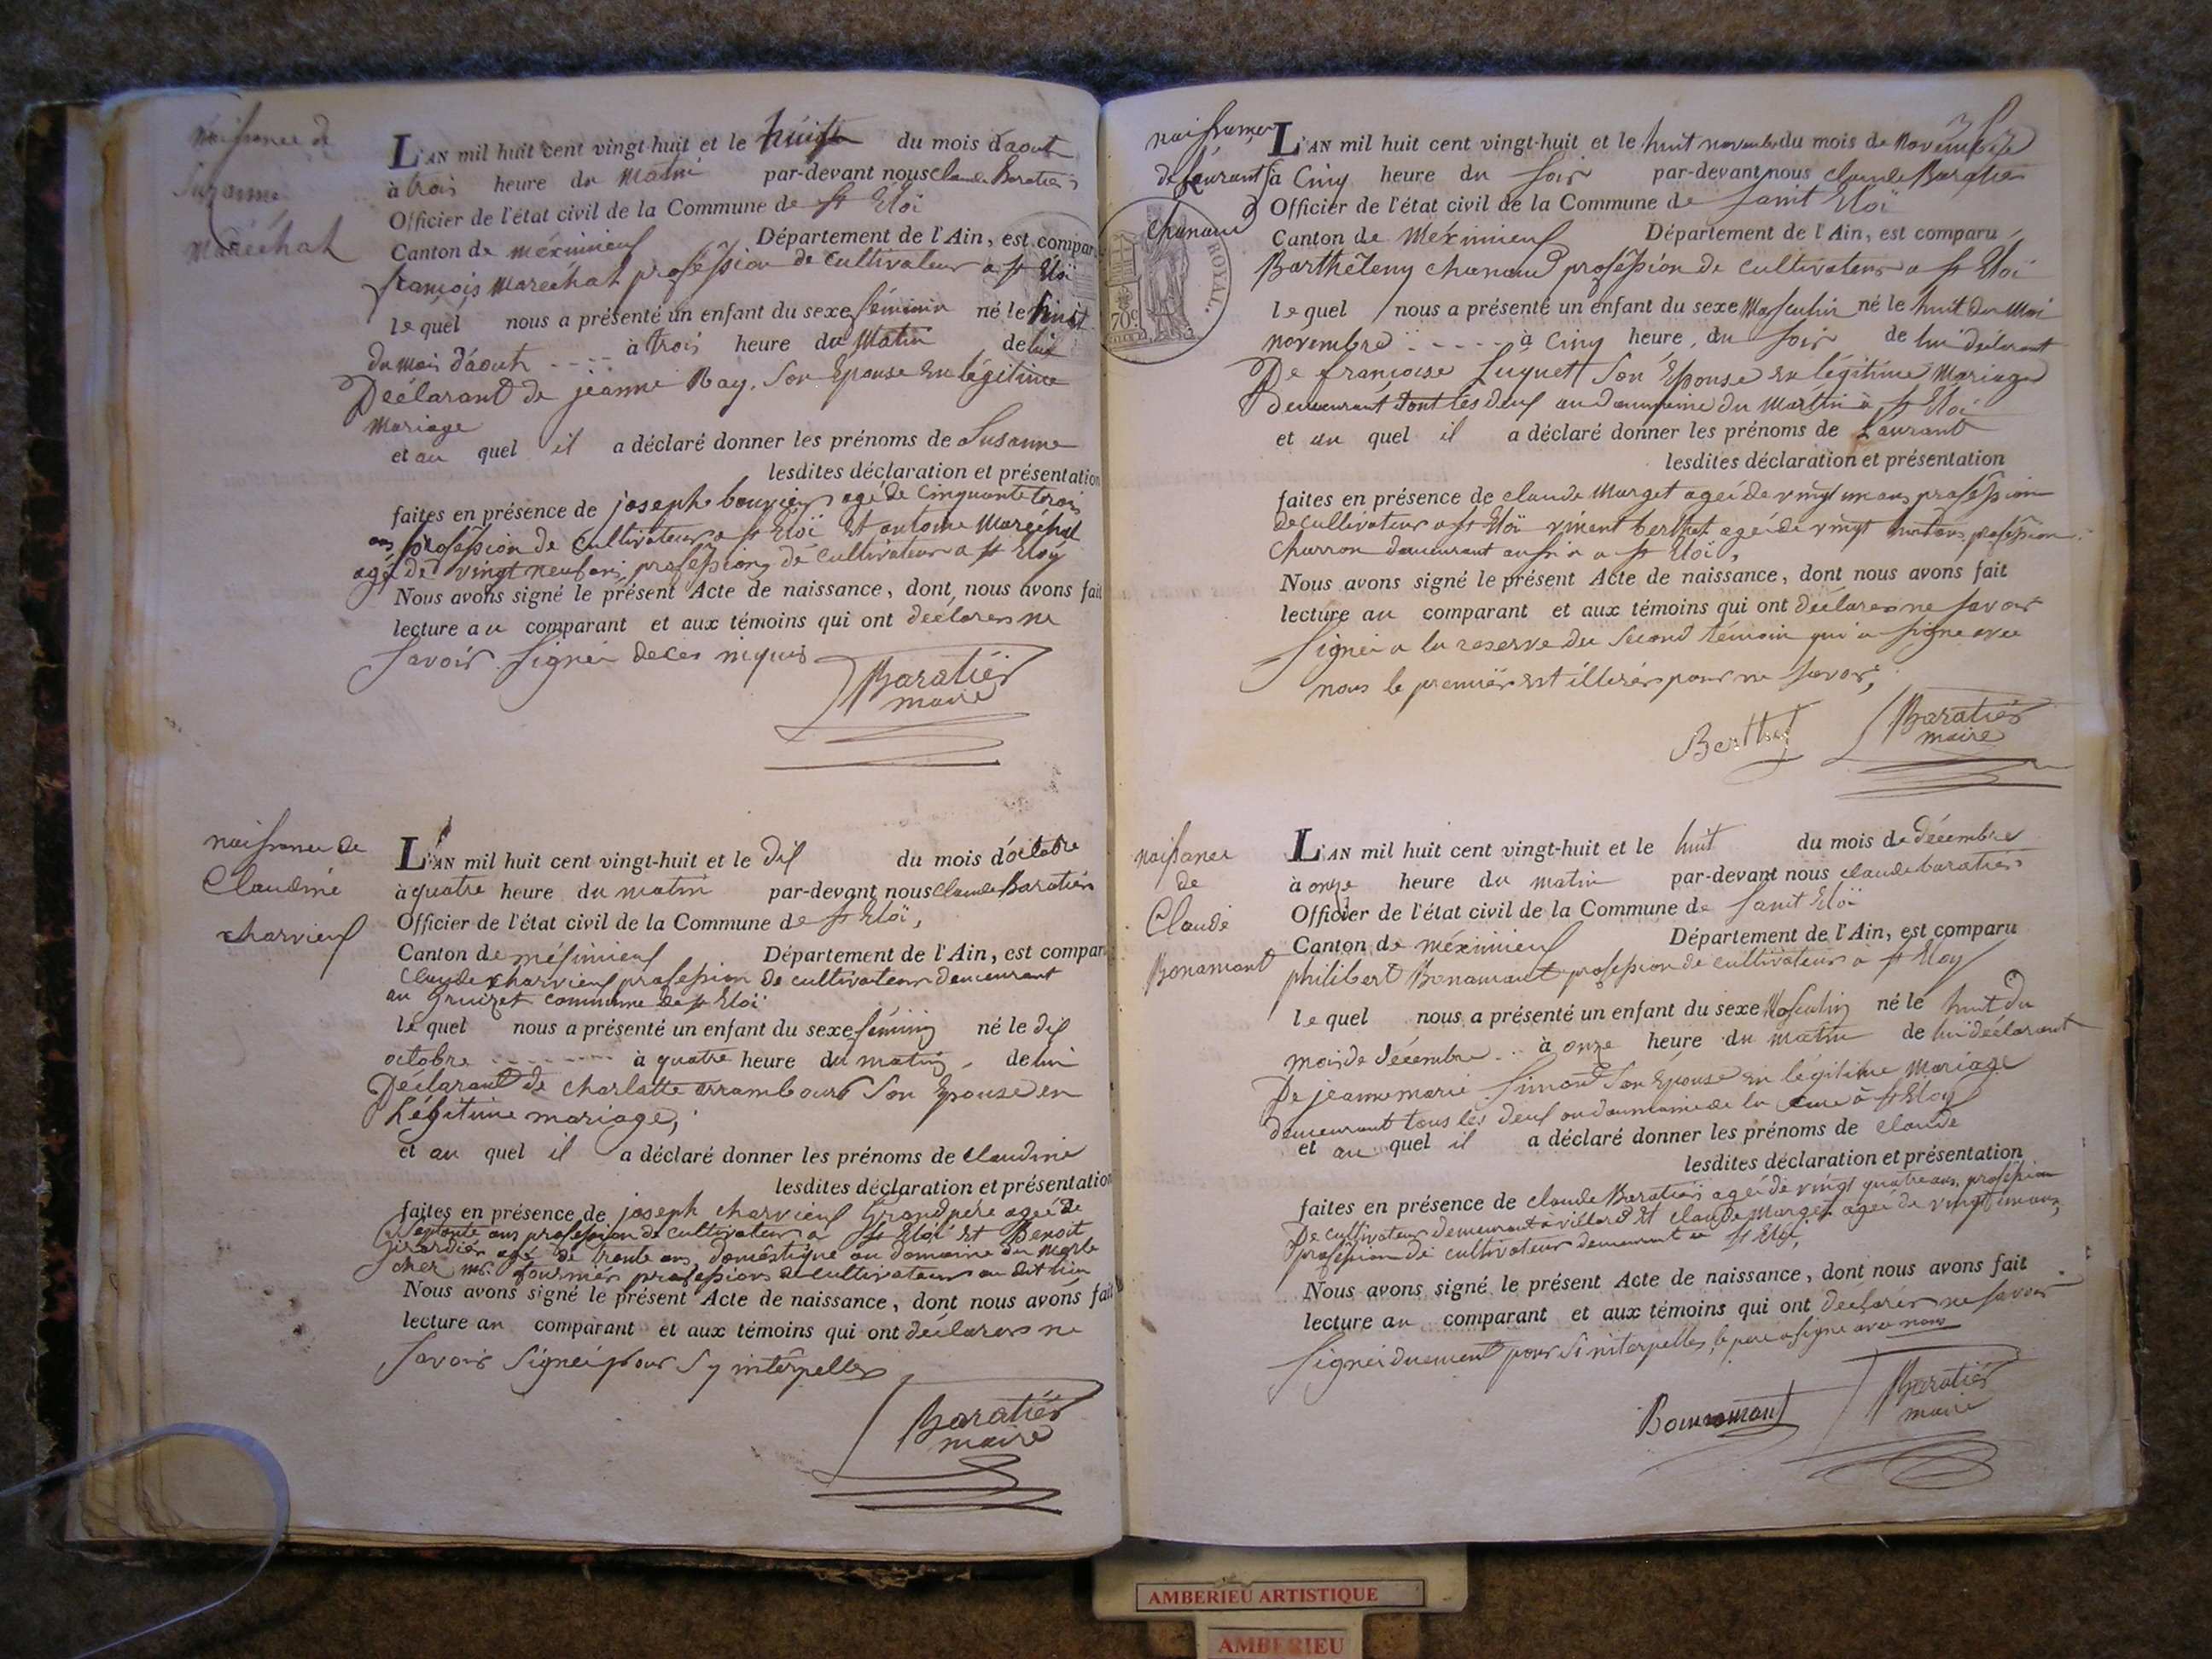 naissance de
Suzanne
Maréchal
L'AN mil huit cent vingt-huit et le huit du mois d'aout
à trois heure du matin par-devant nous Claude Baratier
Officier de l'état civil de la Commune de St Eloi
Canton de méximieux Département de l'Ain, est compar
françois Maréchal profession de cultivateur a St Eloi
lequel nous a présenté un enfant du sexe féminin né le huit
du mois d'aout à trois heure du Matin de lui
Déclarant de jeanne Ray, Son Epouse en légitime
Mariage
et au quel il a déclaré donner les prénoms de Susanne
lesdites déclaration et présentation
faites en présence de joseph bouvier agé de cinquante trois
ans profession de cultivateur a St Eloi Et antoine Maréchal
agé de vingt neuf ans profession de cultivateur a St Eloy
Nous avons signé le présent Acte de naissance, dont nous avons fait
lecture au comparant et aux témoins qui ont déclarer ne
Savoir Signer de ces
Baratier
maire
naissance de
Claudine
charvieux
L'AN mil huit cent vingt-huit et le dix du mois d'octobre
à quatre heure du matin par-devant nous Claude Baratier
Officier de l'état civil de la Commune de St Eloi,
Canton de méximieux Département de l'Ain, est compar
Claude charvieux profession de cultivateur demeurant
au Gruizet commune de St Eloi
lequel nous a présenté un enfant du sexe féminin né le dix
octobre à quatre heure du matin, de lui
Déclarant de charlatte arrambourg Son Epouse en
Légitime mariage,
et au quel il a déclaré donner les prénoms de Claudine
lesdites déclaration et présentation
faites en présence de joseph charvieux Grand père agée de
Septante ans profession de cultivateur a St Eloi et Benoit
Girardier agé de trente ans domestique au domaine du Marte
cher mr. fournier profession de cultivateur au dit lieu
Nous avons signé le présent Acte de naissance, dont nous avons fait
lecture au comparant et aux témoins qui ont déclarer ne
Savoir Signer pour Sy interpeller
Baratier
maire
naissance
de Laurant
chanaud
L'AN mil huit cent vingt-huit et le huit novembre du mois de Novembre
à Cinq heure du Soir par-devant nous Claude Baratier
Officier de l'état civil de la Commune de Saint Eloi
Canton de Méximieux Département de l'Ain, est comparu
Barthèlemy chanaud profession de cultivateur a St Eloi
lequel nous a présenté un enfant du sexe Masculin né le huit du Moi
novembre à Cinq heure, du Soir de lui déclarant
De françoise Luquet Son Epouse en légitime Mariage
Demeurant tout les deux au daumaine du Martin à St Eloi
et au quel il a déclaré donner les prénoms de Laurant
lesdites déclaration et présentation
faites en présence de Claude Marget agée de vingt un ans profession
de cultivateur a St Eloi vincent berthet agée de vingt huit ans, profession
Charron demeurant aussi a St Eloi,
Nous avons signé le présent Acte de naissance, dont nous avons fait
lecture au comparant et aux témoins qui ont déclarer ne Savoir
Signer a la reserve du Second témoin qui a Signe avec
nous le premier est illiréz pour ne Savoir,
Berthet
Baratier
maire
naissance
de
Claude
Bonamant
L'AN mil huit cent vingt-huit et le huit du mois de décembre
à onze heure du matin par-devant nous claude baratier
Officier de l'état civil de la Commune de Saint Eloi
Canton de méximieux Département de l'Ain, est comparu
philibert Bonamant profession de cultivateur à St Eloy
lequel nous a présenté un enfant du sexe Masculin né le huit du
mois de décembre à onze heure du matin de lui déclarant
De jeanne marie Simond Son Epouse en légitime Mariage
demeurant tous les deux au daumaine de la cure à St Eloy
et au quel il a déclaré donner les prénoms de Claude
lesdites déclaration et présentation
faites en présence de Claude Baratier agée de vingt quatre ans, profession
De cultivateur demeurant a villard et Claude Marget agée de vingt un ans,
profession de cultivateur demeurant a St Eloi,
Nous avons signé le présent Acte de naissance, dont nous avons fait
lecture au comparant et aux témoins qui ont declarer ne Savoir
Signer duement pour Si interpeller, le pere a signe avec nous
Bonnamant
Baratier
maire
ROYAL.
70c
AMBERIEU ARTISTIQUE
AMBERIEU